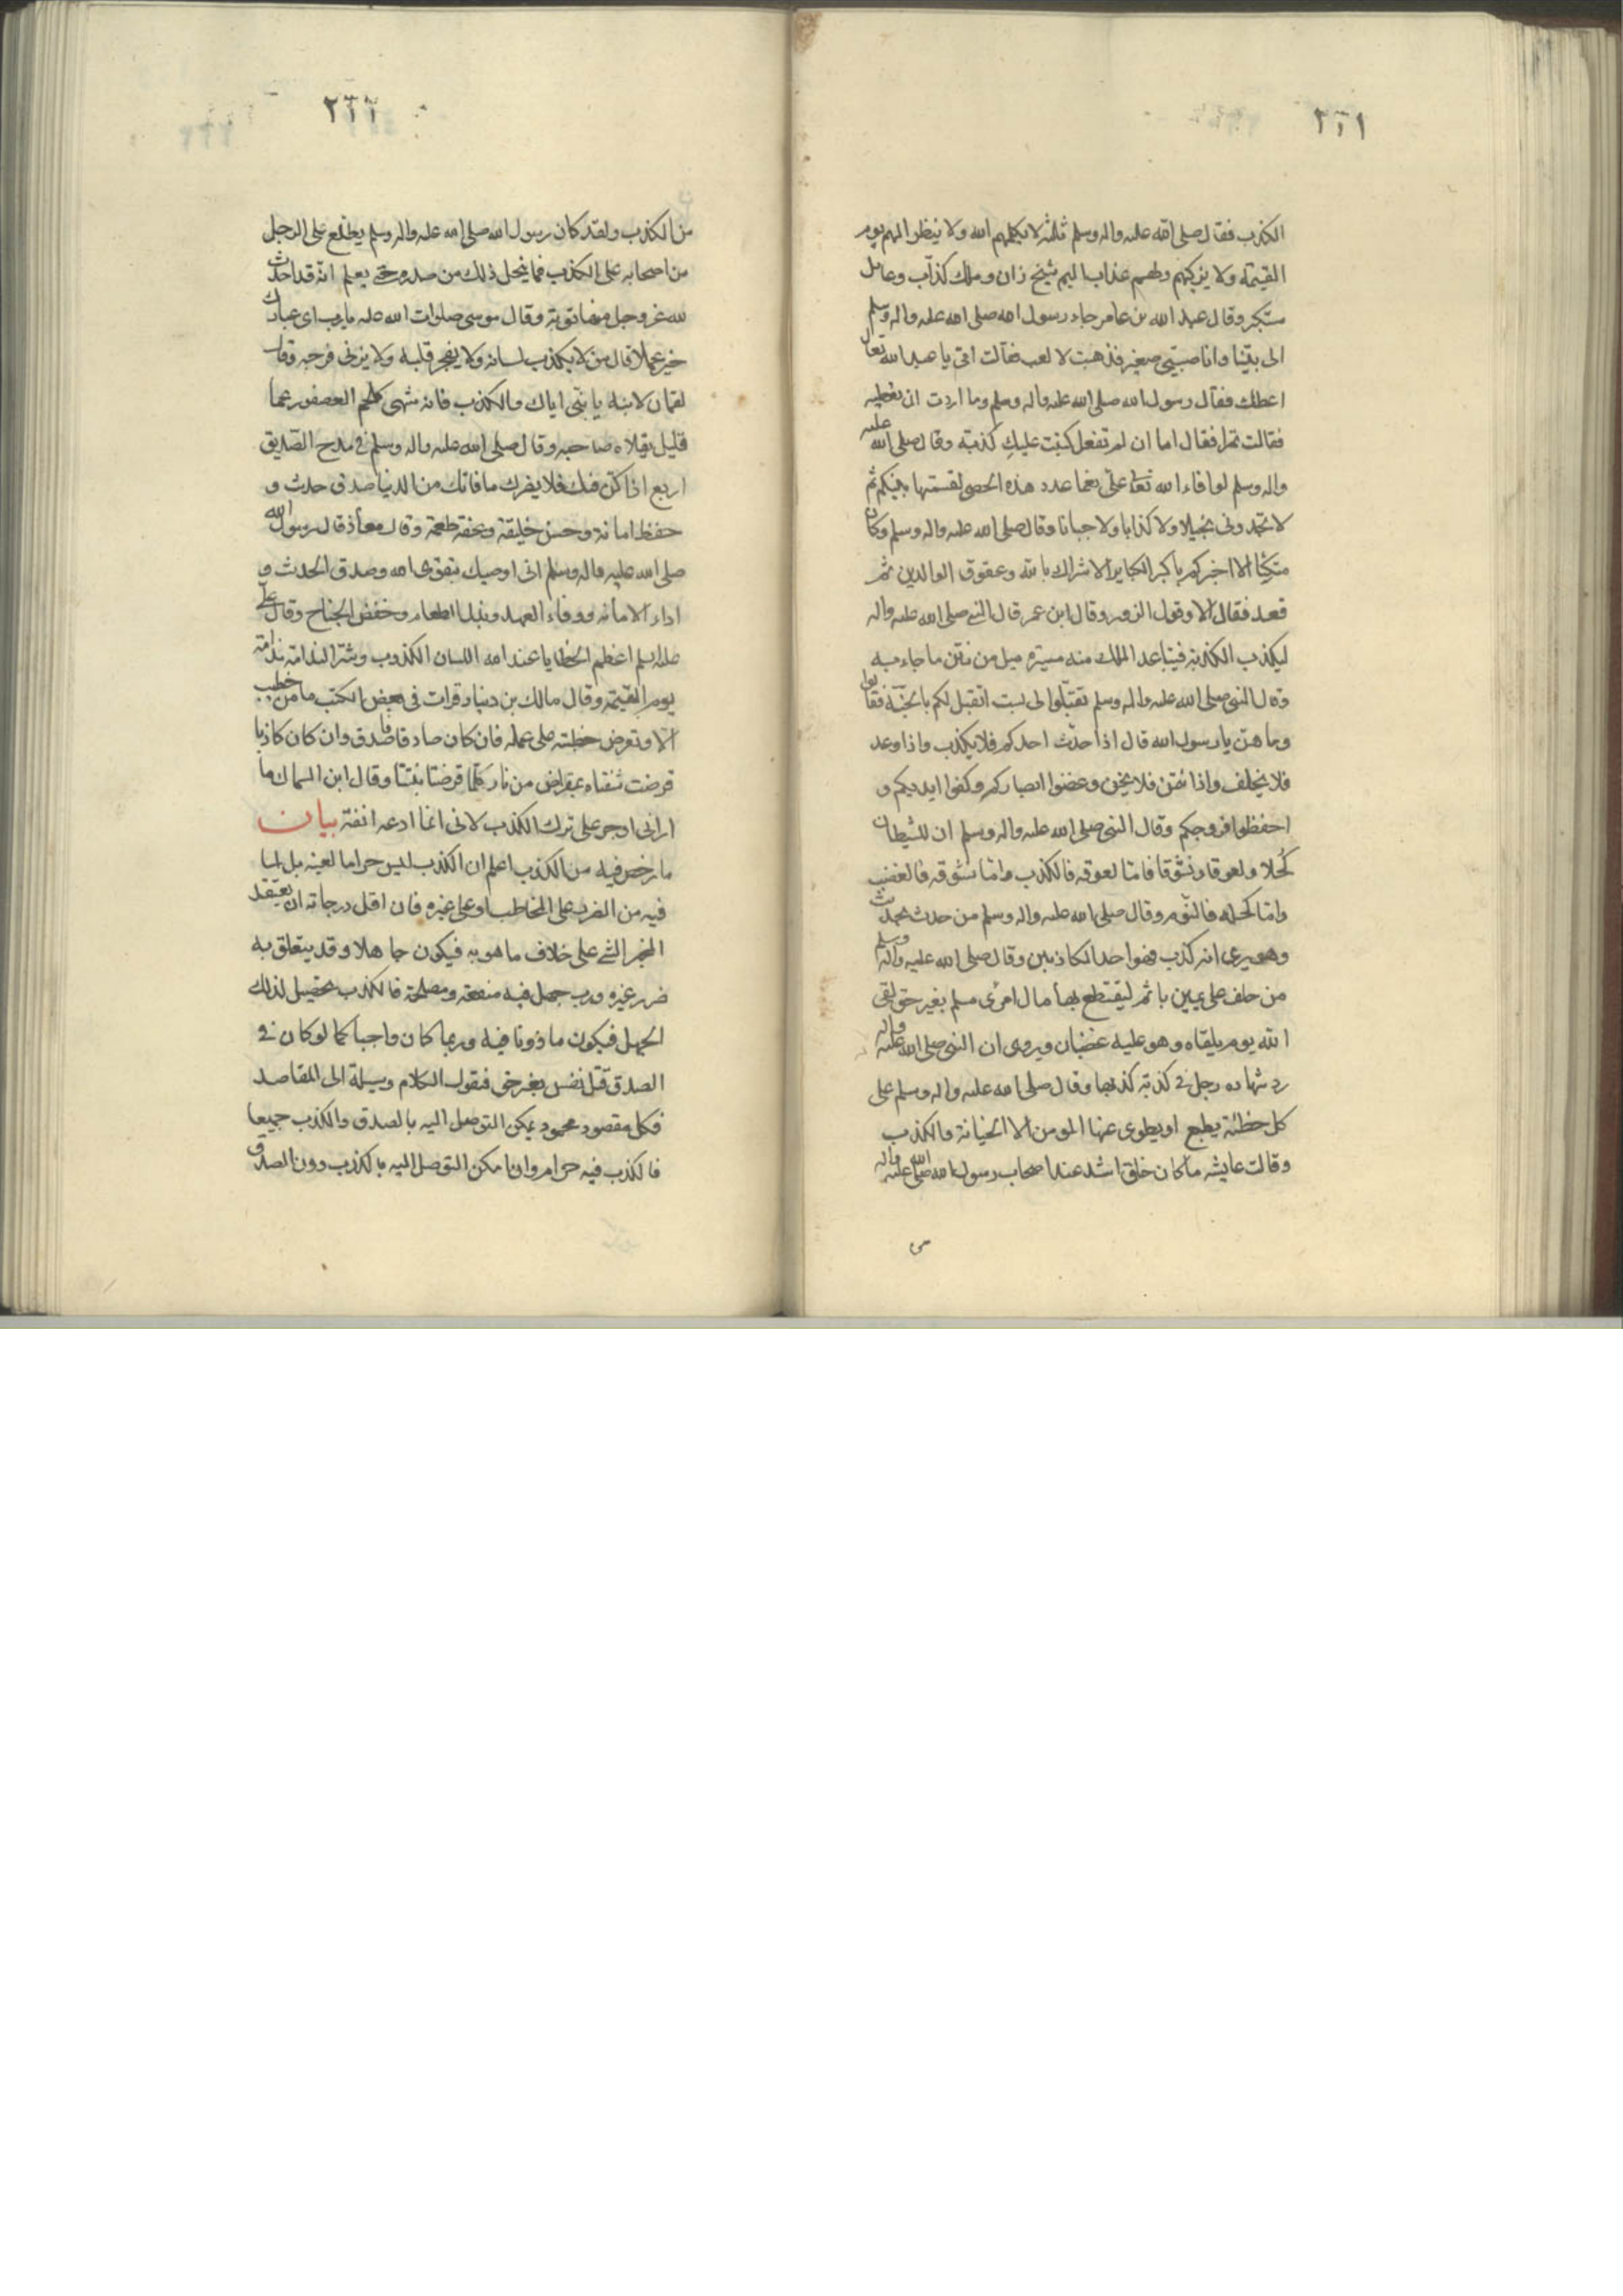 ٢٦١
الكذب فقال صلى الله عليه واله وسلم ثلثة لا يكلمهم الله ولا ينظر اليهم يوم
القيمة ولا يزكيهم ولهم عذاب اليم شيخ زان وملك كذاب وعامل
متكبر وقال عبد الله بن عامر جاء رسول الله صلى الله عليه واله وسلم
الى بيتنا وانا صبى صغير فذهبت لالعب فقالت امى يا عبد الله تعال
اعطك فقال رسول الله صلى الله عليه واله وسلم وما اردت ان تعطيه
فقالت تمرا فقال اما ان لم تفعل كتبت عليك كذبة وقال صلى الله عليه
واله وسلم لو افاء الله تعالى على نعما عدد هذه الحصى لقسمتها بينكم ثم
لا تجدونى بخيلا ولا كذابا ولا جبانا وقال صلى الله عليه واله وسلم وكان
متكئا الا اخبركم باكبر الكباير الاشراك بالله وعقوق الوالدين ثم
قعد فقال الا وقول الزور وقال ابن عمر قال النبى صلى الله عليه واله
ليكذب الكذبة فيتباعد الملك منه مسيرة ميل من نتن ما جاء به
وقال النبى صلى الله عليه واله وسلم تقبلوا لى بست اتقبل لكم بالجنة فقالوا
وما هن يا رسول الله قال اذا حدث احدكم فلا يكذب واذا وعد
فلا يخلف واذا ئتمن فلا يخن وغضوا ابصاركم وكفوا ايديكم و
احفظوا فروجكم وقال النبى صلى الله عليه واله وسلم ان للشيطان
كحلا ولعوقا ونشوقا فاما لعوقه فالكذب واما نشوقه فالغضب
واما كحله فالنوم وقال صلى الله عليه واله وسلم من حدث بحديث
وهو يرى انه كذب فهو احد الكاذبين وقال صلى الله عليه واله وسلم
من حلف على يمين باثم ليقتطع بها مال امرئ مسلم بغير حق لقى
الله يوم يلقاه وهو عليه غضبان ويروى ان النبى صلى الله عليه واله
رد شهاده رجل فى كذبة كذبها وقال صلى الله عليه واله وسلم على
كل خطئة يطبع او يطوى عنها المومن الا الخيانة والكذب
وقالت عايشه ما كان خلق اشد عند اصحاب رسول الله صلى الله عليه واله
من
٢٦٢
من الكذب ولقد كان رسول الله صلى الله عليه واله وسلم يطلع على الرجل
من اصحابه على الكذب فما ينحل ذلك من صدره حتى يعلم انه قد احدث
لله عز وجل منها توبة وقال موسى صلوات الله عليه يا رب اى عبادك
خير عملا قال من لا يكذب لسانه ولا يفجر قلبه ولا يزنى فرجه وقال
لقمان لابنه يا بنى اياك والكذب فانه شهى كلحم العصفور عما
قليل يقلاه صاحبه وقال صلى الله عليه واله وسلم فى مدح الصديق
اربع اذا كن فيك فلا يضرك ما فاتك من الدنيا صدق حدث و
حفظ امانة وحسن خليقة وعفة طعمة وقال معاذ قال رسول الله
صلى الله عليه واله وسلم انى اوصيك بتقوى الله وصدق الحدث و
اداء الامانه ووفاء العهد وبذل الطعام وخفض الجناح وقال على
عليه السلم اعظم الخطايا عند الله اللسان الكذوب وشر الندامة ندامة
يوم القيمة وقال مالك بن دينار قرات فى بعض الكتب ما من خطيب
الا وتعرض خطبته على عمله فان كان صادقا صدق وان كان كاذبا
قرضت شفتاه بمقراض من نار كلما قرضتا نبتتا وقال ابن السماك ما
ارانى اوجر على ترك الكذب لانى انما ادعه انفة بيان
ما رخص فيه من الكذب اعلم ان الكذب ليس حراما لعينه بل لما
فيه من الضرر على المخاطب او على غيره فان اقل درجاته ان يعتقد
المخبر الشئ على خلاف ما هو به فيكون جاهلا وقد يتعلق به
ضرر غيره ورب جهل فيه منفعة ومصلحة فالكذب تحصيل لذلك
الجهل فيكون ماذونا فيه وربما كان واجبا كما لو كان فى
الصدق قتل نفس بغير حق فنقول الكلام وسيلة الى المقاصد
فكل مقصود محمود يمكن التوصل اليه بالصدق والكذب جميعا
فالكذب فيه حرام وان امكن التوصل اليه بالكذب دون الصدق